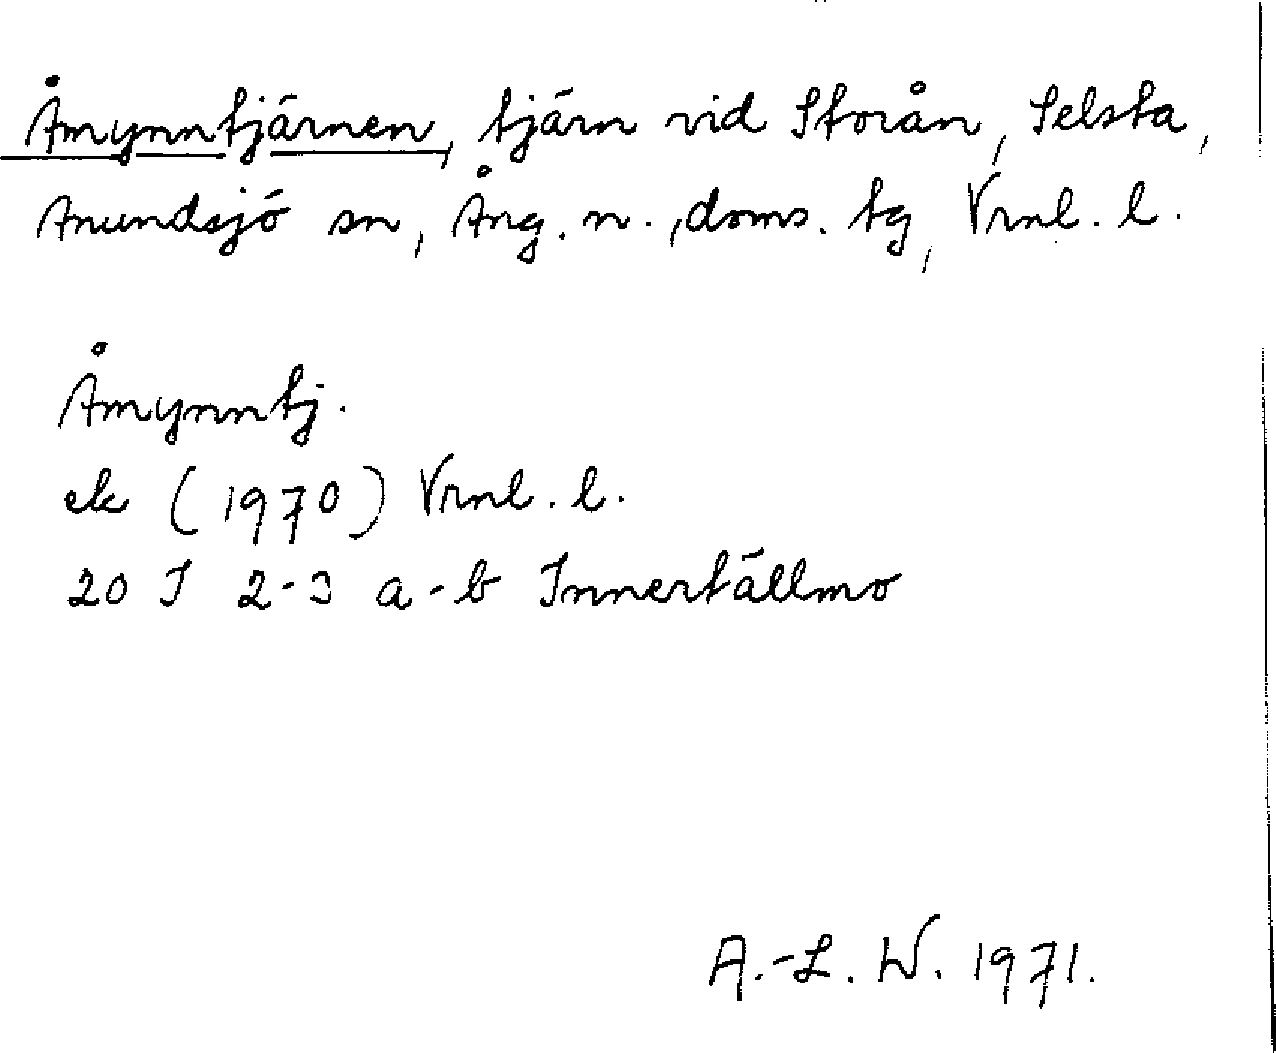 Åmynntjärnen, tjärn vid Storån, Selsta,
Anundsjö sn, Ång. n., doms. tg, Vrnl. l.
Åmynntj.
ek (1970) Vrnl. l.
20 J 2-3 a-b Innertällmo
A.-L. W. 1971.